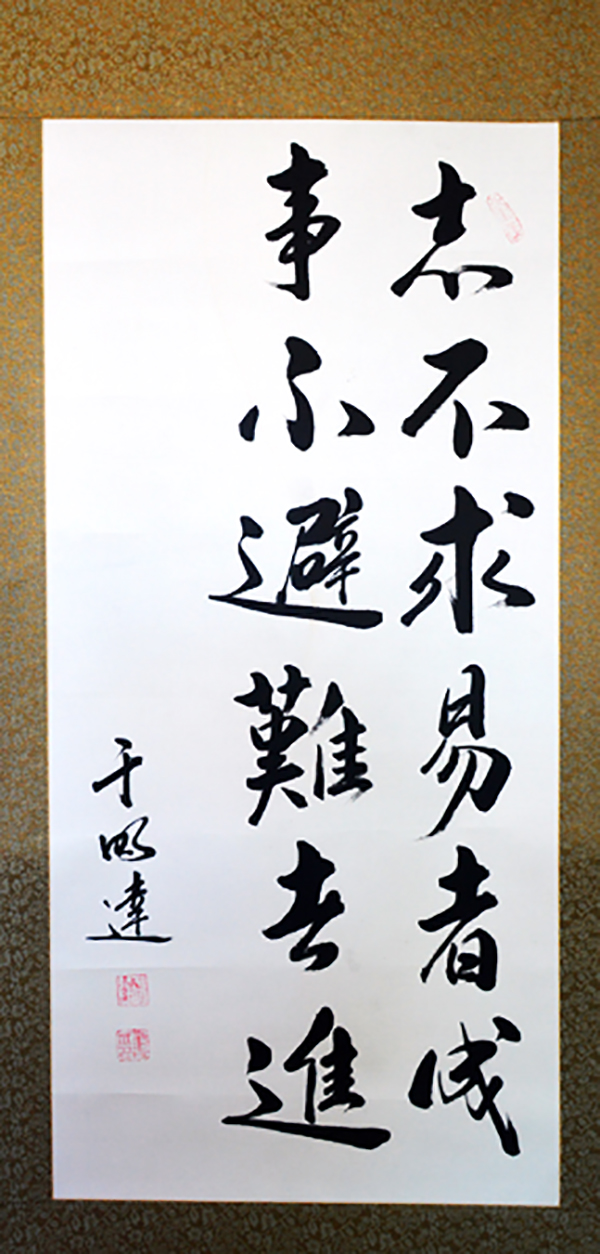 志不求易者成
事不避難者進
于明達